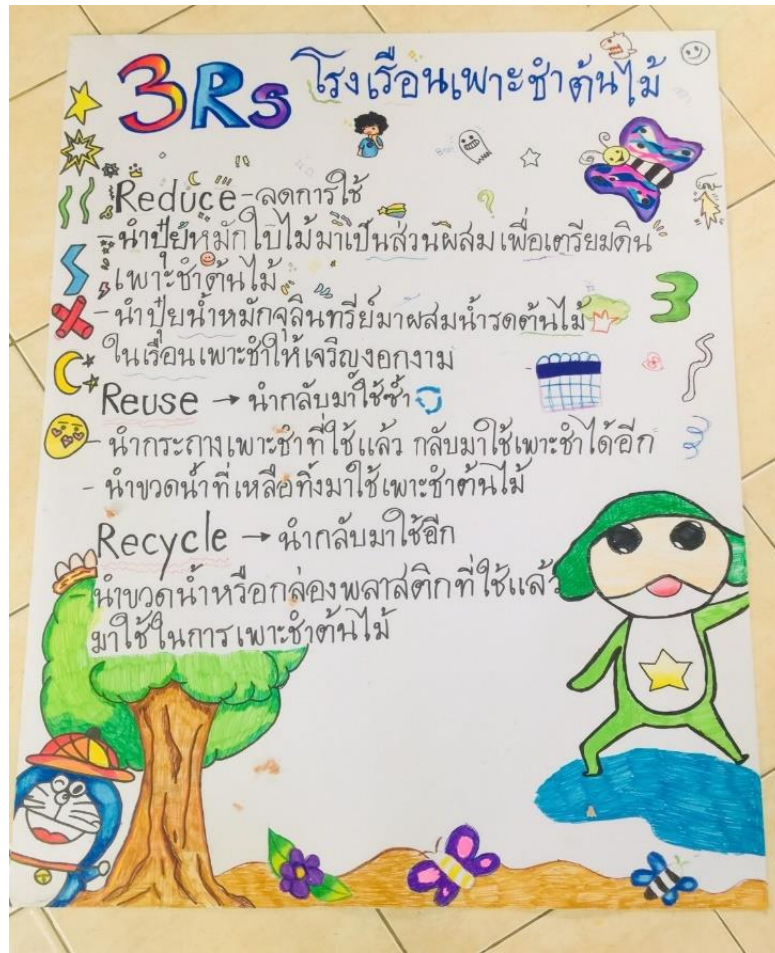 3Rs โรงเรือนเพาะชำต้นไม้
Reduce - ลดการใช้
- นำปุ๋ยหมักใบไม้มาเป็นส่วนผสมเพื่อเตรียมดิน
เพาะชำต้นไม้
- นำปุ๋ยน้ำหมักจุลินทรีย์มาผสมน้ำรดต้นไม้
ในเรือนเพาะชำให้เจริญงอกงาม
Reuse → นำกลับมาใช้ซ้ำ
- นำกระถางเพาะชำที่ใช้แล้ว กลับมาใช้เพาะชำได้อีก
- นำขวดน้ำที่เหลือทิ้งมาใช้เพาะชำต้นไม้
Recycle → นำกลับมาใช้อีก
นำขวดน้ำหรือกล่องพลาสติกที่ใช้แล้ว
มาใช้ในการเพาะชำต้นไม้